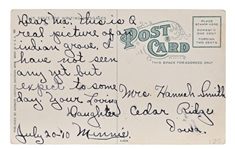 Dear Ma: this is a
real picture of an
indian grove, I
have not seen
any yet but
expect to some
day. Your Loving
Daughter
July 20-10 Minnie.
POST CARD
THIS SPACE FOR ADDRESS ONLY
PLACE STAMP HERE
DOMESTIC ONE CENT
FOREIGN TWO CENTS
Mrs. Hannah Smith
Cedar Ridge
Iowa.